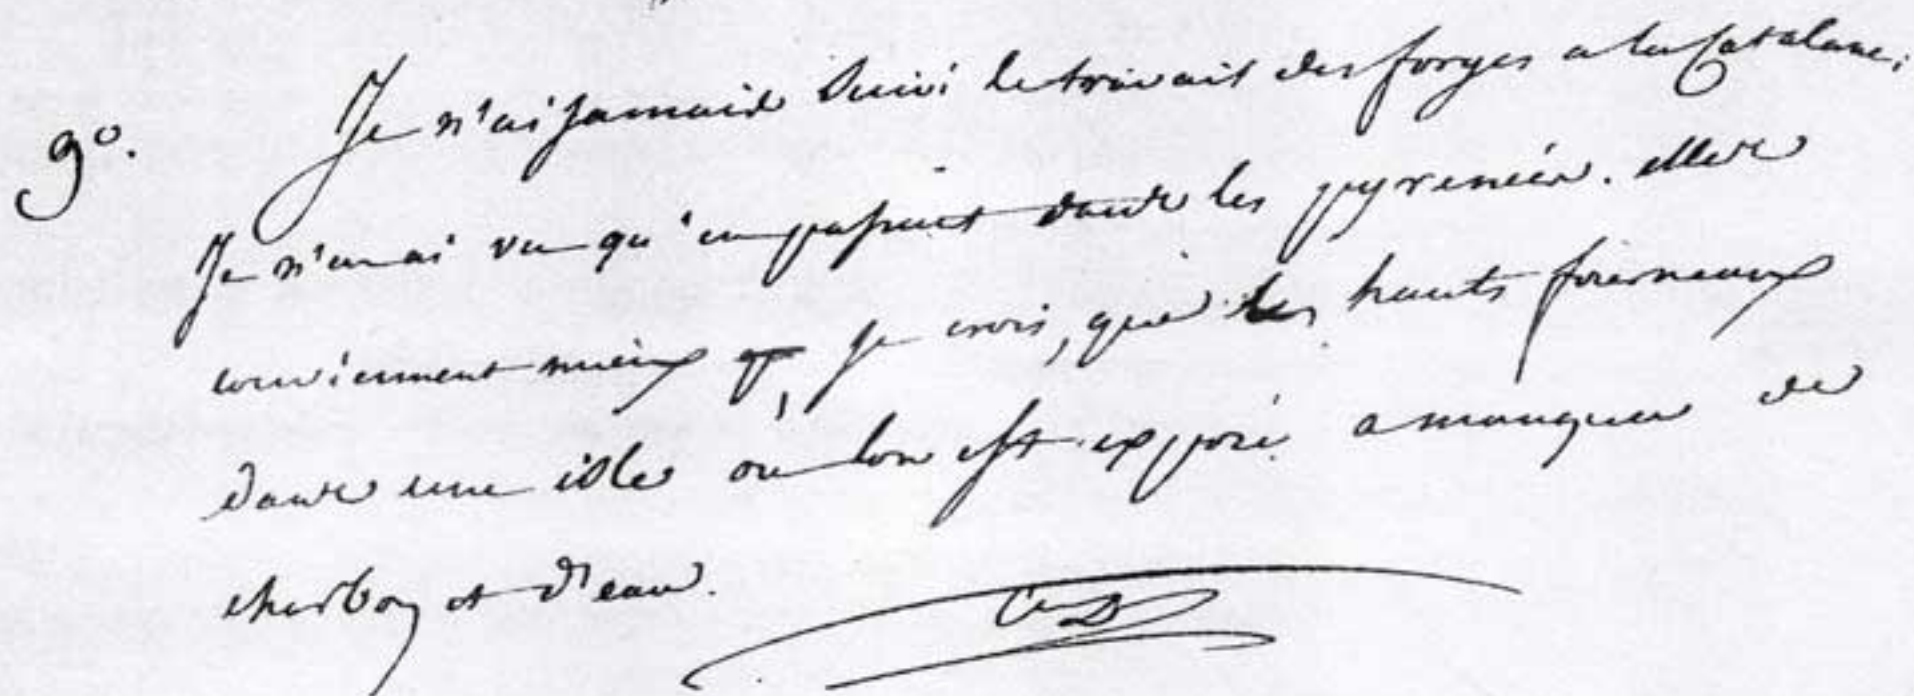 9º. Je n'ai jamais suivi le travail des forges a la Catalane;
Je n'en ai vu qu'en passant dans les pyrenées. elles
conviennent mieux je crois, que les hauts fourneaux
dans une isle où lon est exposé a manquer de
charbon et d'eau.